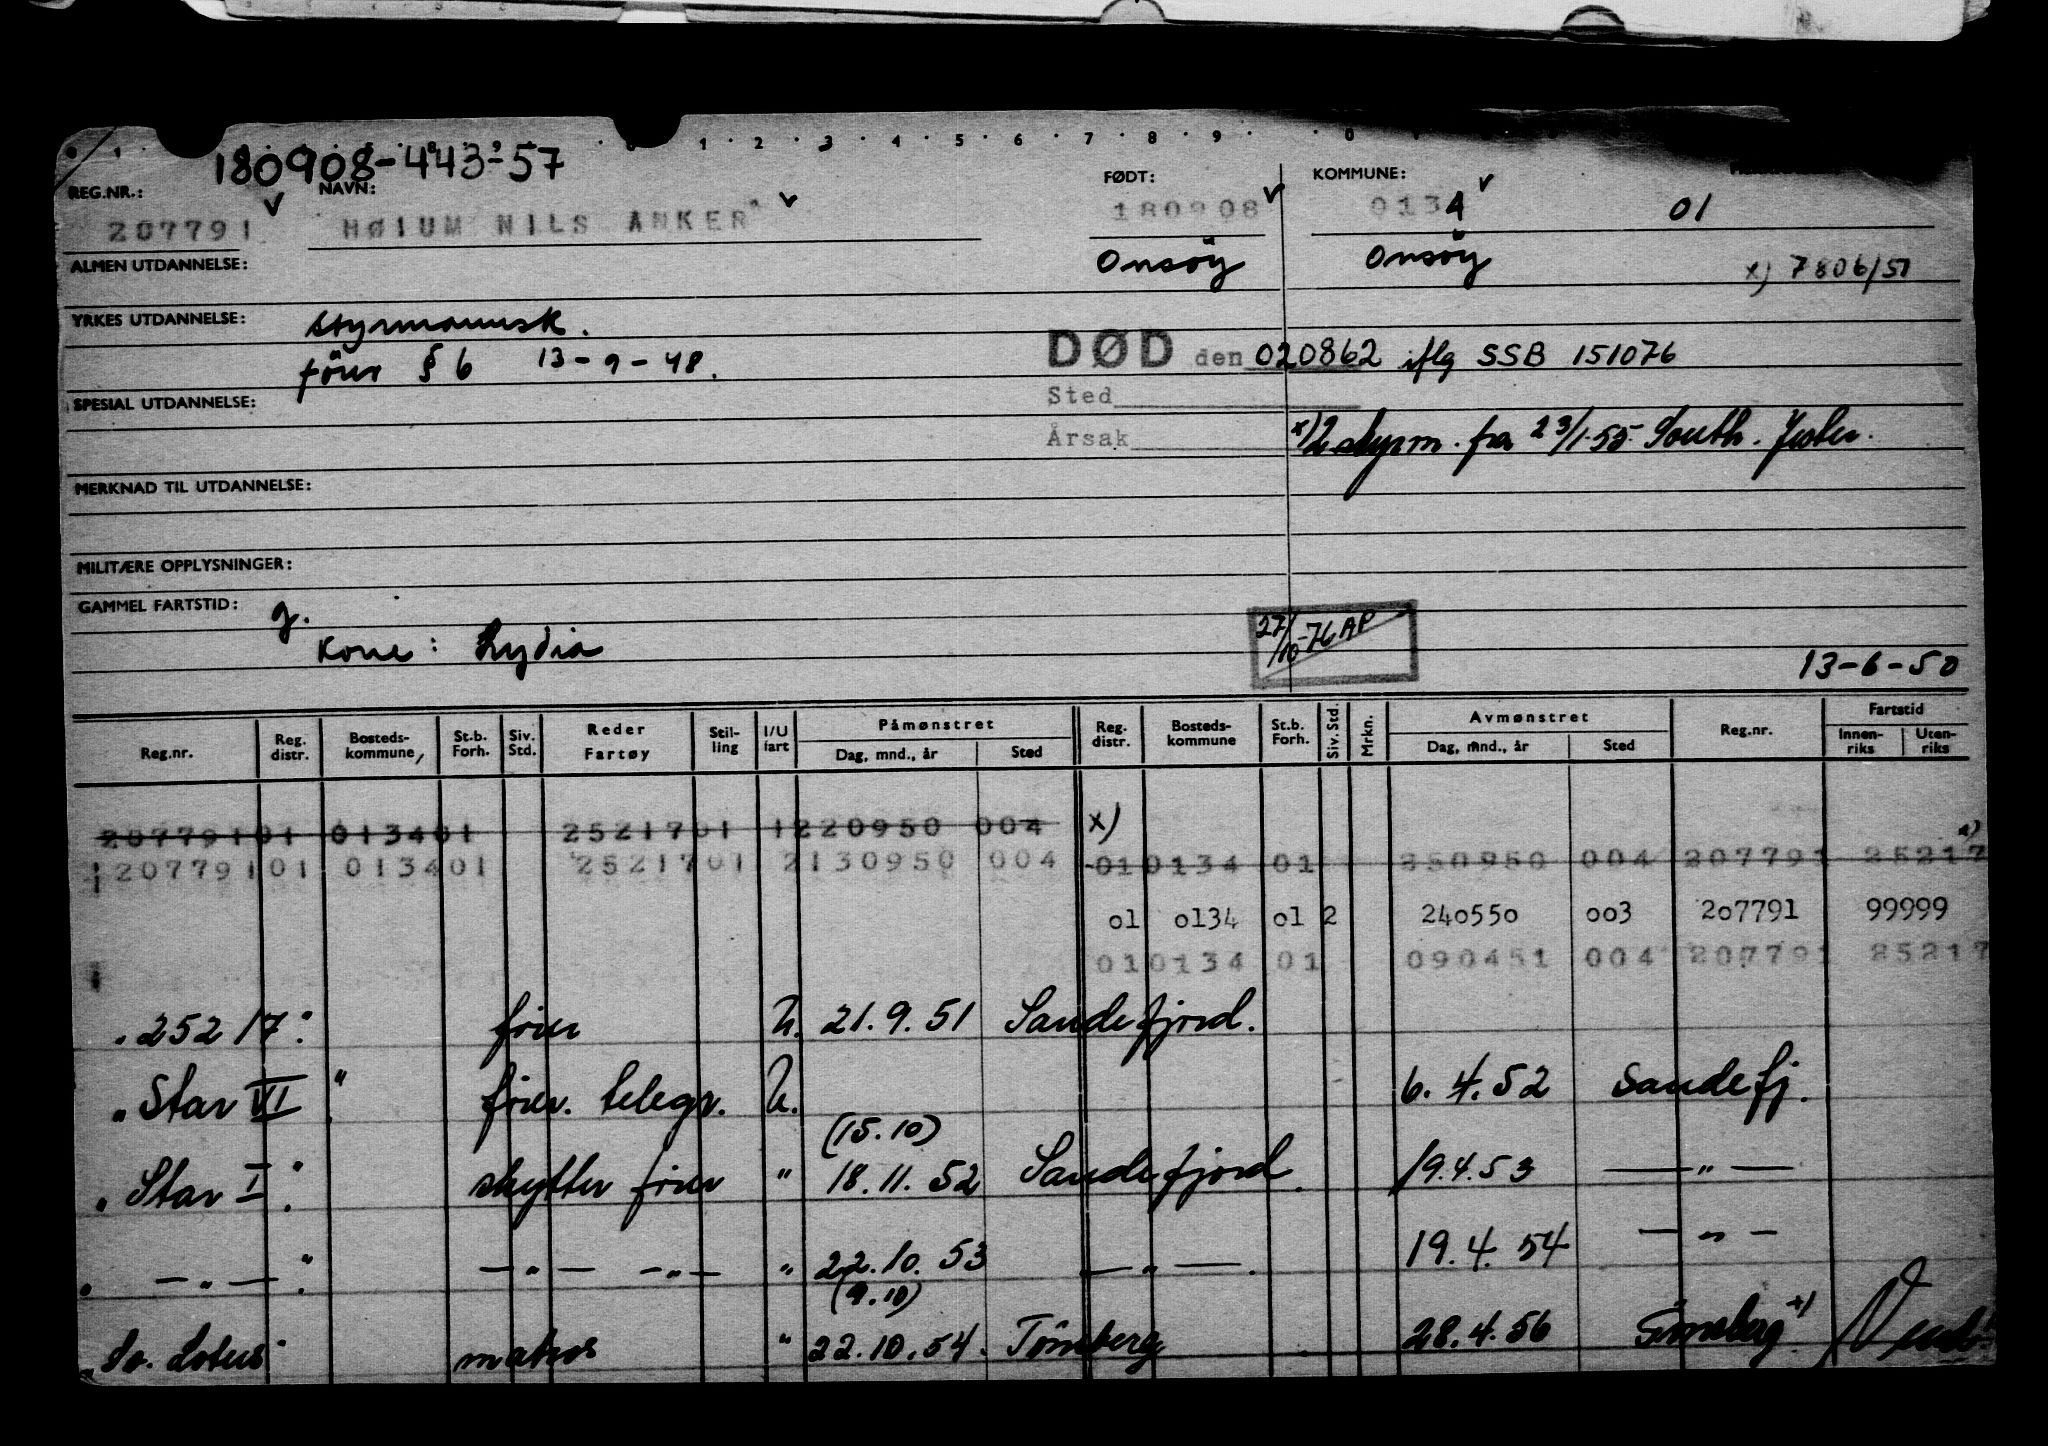 180908-443-57
REG.NR.: NAVN: FØDT: KOMMUNE:
207791 HØIUM NILS ANKER 180908 0134 01
ALMEN UTDANNELSE: Onsöy Onsöy x) 7806/51
YRKES UTDANNELSE: styrmannsk.
förer § 6 13-9-48.
DØD den 020862 iflg SSB 151076
SPESIAL UTDANNELSE: Sted
Årsak x)2 styrm. fra 23/1-55 South.
MERKNAD TIL UTDANNELSE:
MILITÆRE OPPLYSNINGER:
GAMMEL FARTSTID: g.
Kone: Lydia
27/10-76 AP
13-6-50
Reg.nr. Reg. distr. Bosteds-kommune St.b. Forh. Siv. Std. Reder Fartøy Stil-ling I/U fart Påmønstret Dag, mnd., år Sted Reg. distr. Bosteds-kommune St.b. Forh. Siv. Std. Mrkn. Avmønstret Dag, mnd., år Sted Reg.nr. Fartstid Innen-riks Uten-riks
207791 01 0134 01 25217 01 1 220950 004 x)
207791 01 0134 01 25217 01 2 130950 004 01 0134 01 250950 004 207791 25217 x)
01 0134 01 2 240550 003 207791 99999
01 0134 01 090451 004 207791 25217
" 25217 " förer U. 21.9.51 Sandefjord.
" Star VI " förer. telegr. U. 6.4.52 Sandefj.
(15.10)
" Star I " skytter förer " 18.11.52 Sandefjord. 19.4.53 — " —
" — " — " — " — — " — " 22.10.53 — " —. 19.4.54 — " —
(9.10)
" So. Lotus " matros " 22.10.54. Tönsberg 28.4.56 Tönsberg x)